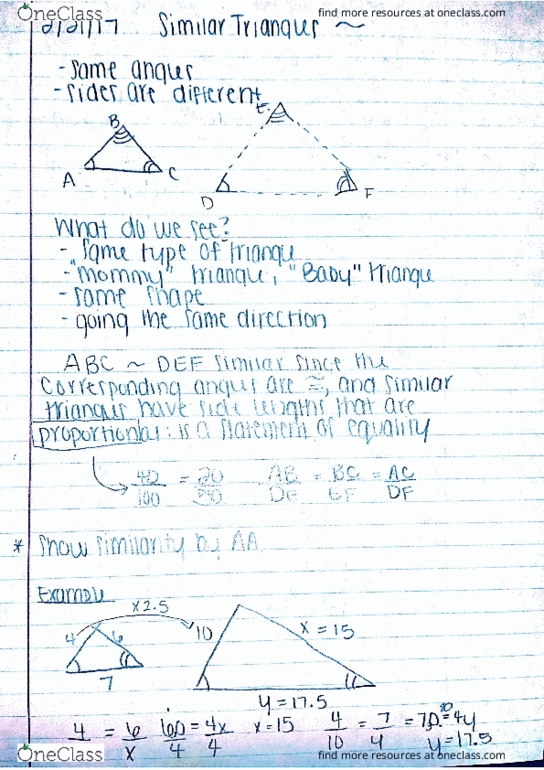 OneClass
find more resources at oneclass.com
2/21/17 Similar Triangles ~
- same angles
- sides are different
B
E
A
C
D
F
What do we see?
- same type of triangle
- "mommy" triangle, "Baby" triangle
- same shape
- going the same direction
ABC ~ DEF similar since the
corresponding angles are ≅, and similar
triangles have side lengths that are
proportional: is a statement of equality
100
AB/DE = BC/EF = AC/DF
* Show similarity by AA
Example
x2.5
4
6
10
x = 15
7
y = 17.5
4/10 = 6/x 60/4 = 4x/4 x=15 4/10 = 7/y = 70 = 4y
y=17.5
OneClass
find more resources at oneclass.com